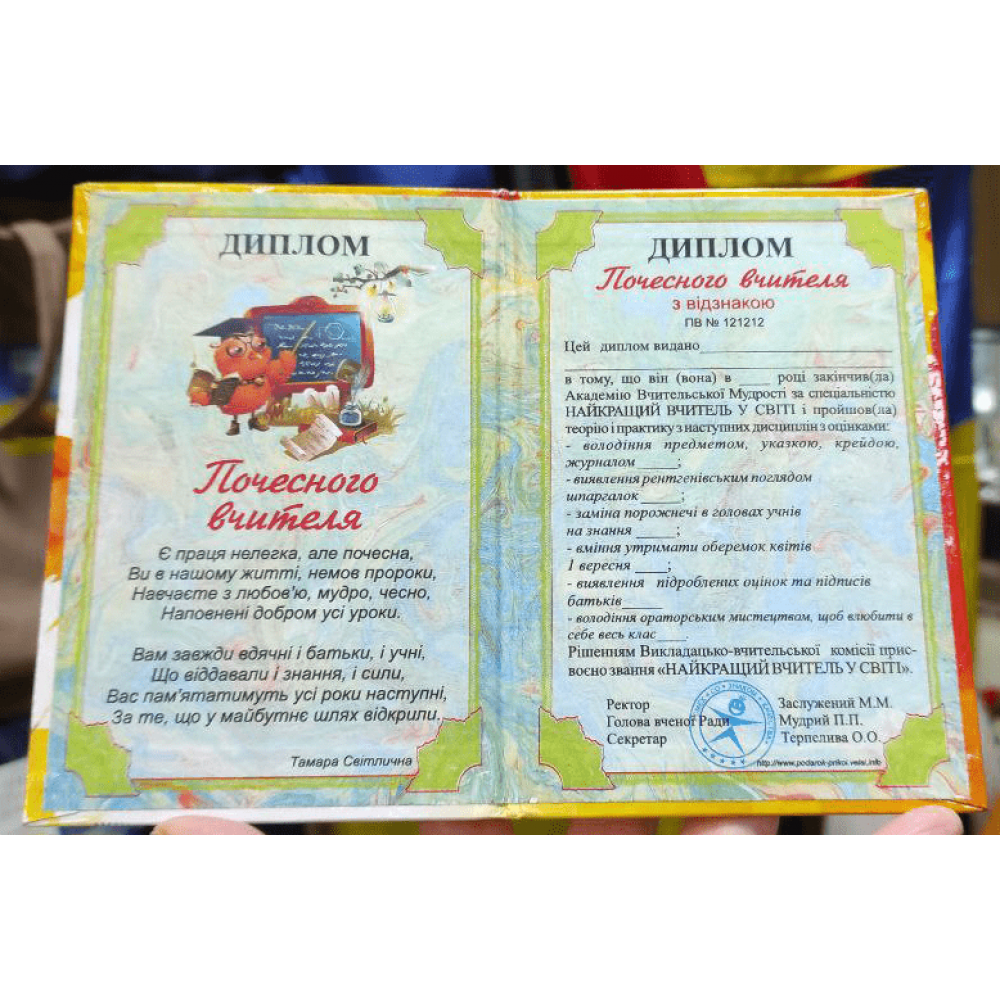 ДИПЛОМ
Почесного
вчителя
Є праця нелегка, але почесна,
Ви в нашому житті, немов пророки,
Навчаєте з любов'ю, мудро, чесно,
Наповнені добром усі уроки.
Вам завжди вдячні і батьки, і учні,
Що віддавали і знання, і сили,
Вас пам'ятатимуть усі роки наступні,
За те, що у майбутнє шлях відкрили.
Тамара Світлична
ДИПЛОМ
Почесного вчителя
з відзнакою
ПВ № 121212
Цей диплом видано
в тому, що він (вона) в ____ році закінчив(ла)
Академію Вчительської Мудрості за спеціальністю
НАЙКРАЩИЙ ВЧИТЕЛЬ У СВІТІ і пройшов(ла)
теорію і практику з наступних дисциплін з оцінками:
- володіння предметом, указкою, крейдою,
журналом _____;
- виявлення рентгенівським поглядом
шпаргалок _____;
- заміна порожнечі в головах учнів
на знання _____;
- вміння утримати оберемок квітів
1 вересня ____;
- виявлення підроблених оцінок та підписів
батьків_____
- володіння ораторським мистецтвом, щоб влюбити в
себе весь клас____.
Рішенням Викладацько-вчительської комісії прис-
воєно звання «НАЙКРАЩИЙ ВЧИТЕЛЬ У СВІТІ».
Ректор Заслужений М.М.
Голова вченої Ради Мудрий П.П.
Секретар Терпелива О.О.